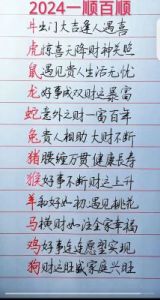 2024一顺百顺
牛出门大吉逢人遇喜
虎惊喜天降财神关照
鼠遇见贵人生活无忧
龙好事成双财运暴富
蛇意外之财一富百年
兔贵人相助大财不断
猪腰缠万贯健康长寿
猴好事不断财之上升
羊和好如初遇见桃花
马横财如注全家幸福
鸡好事连连愿望实现
狗财运旺盛家庭兴旺